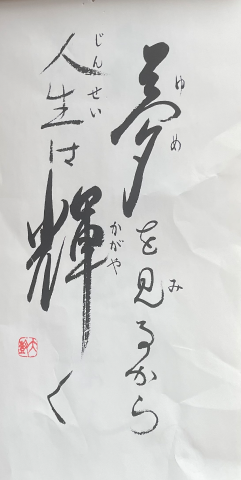 夢を見るから
ゆめ
み
人生は輝く
じんせい
かがや